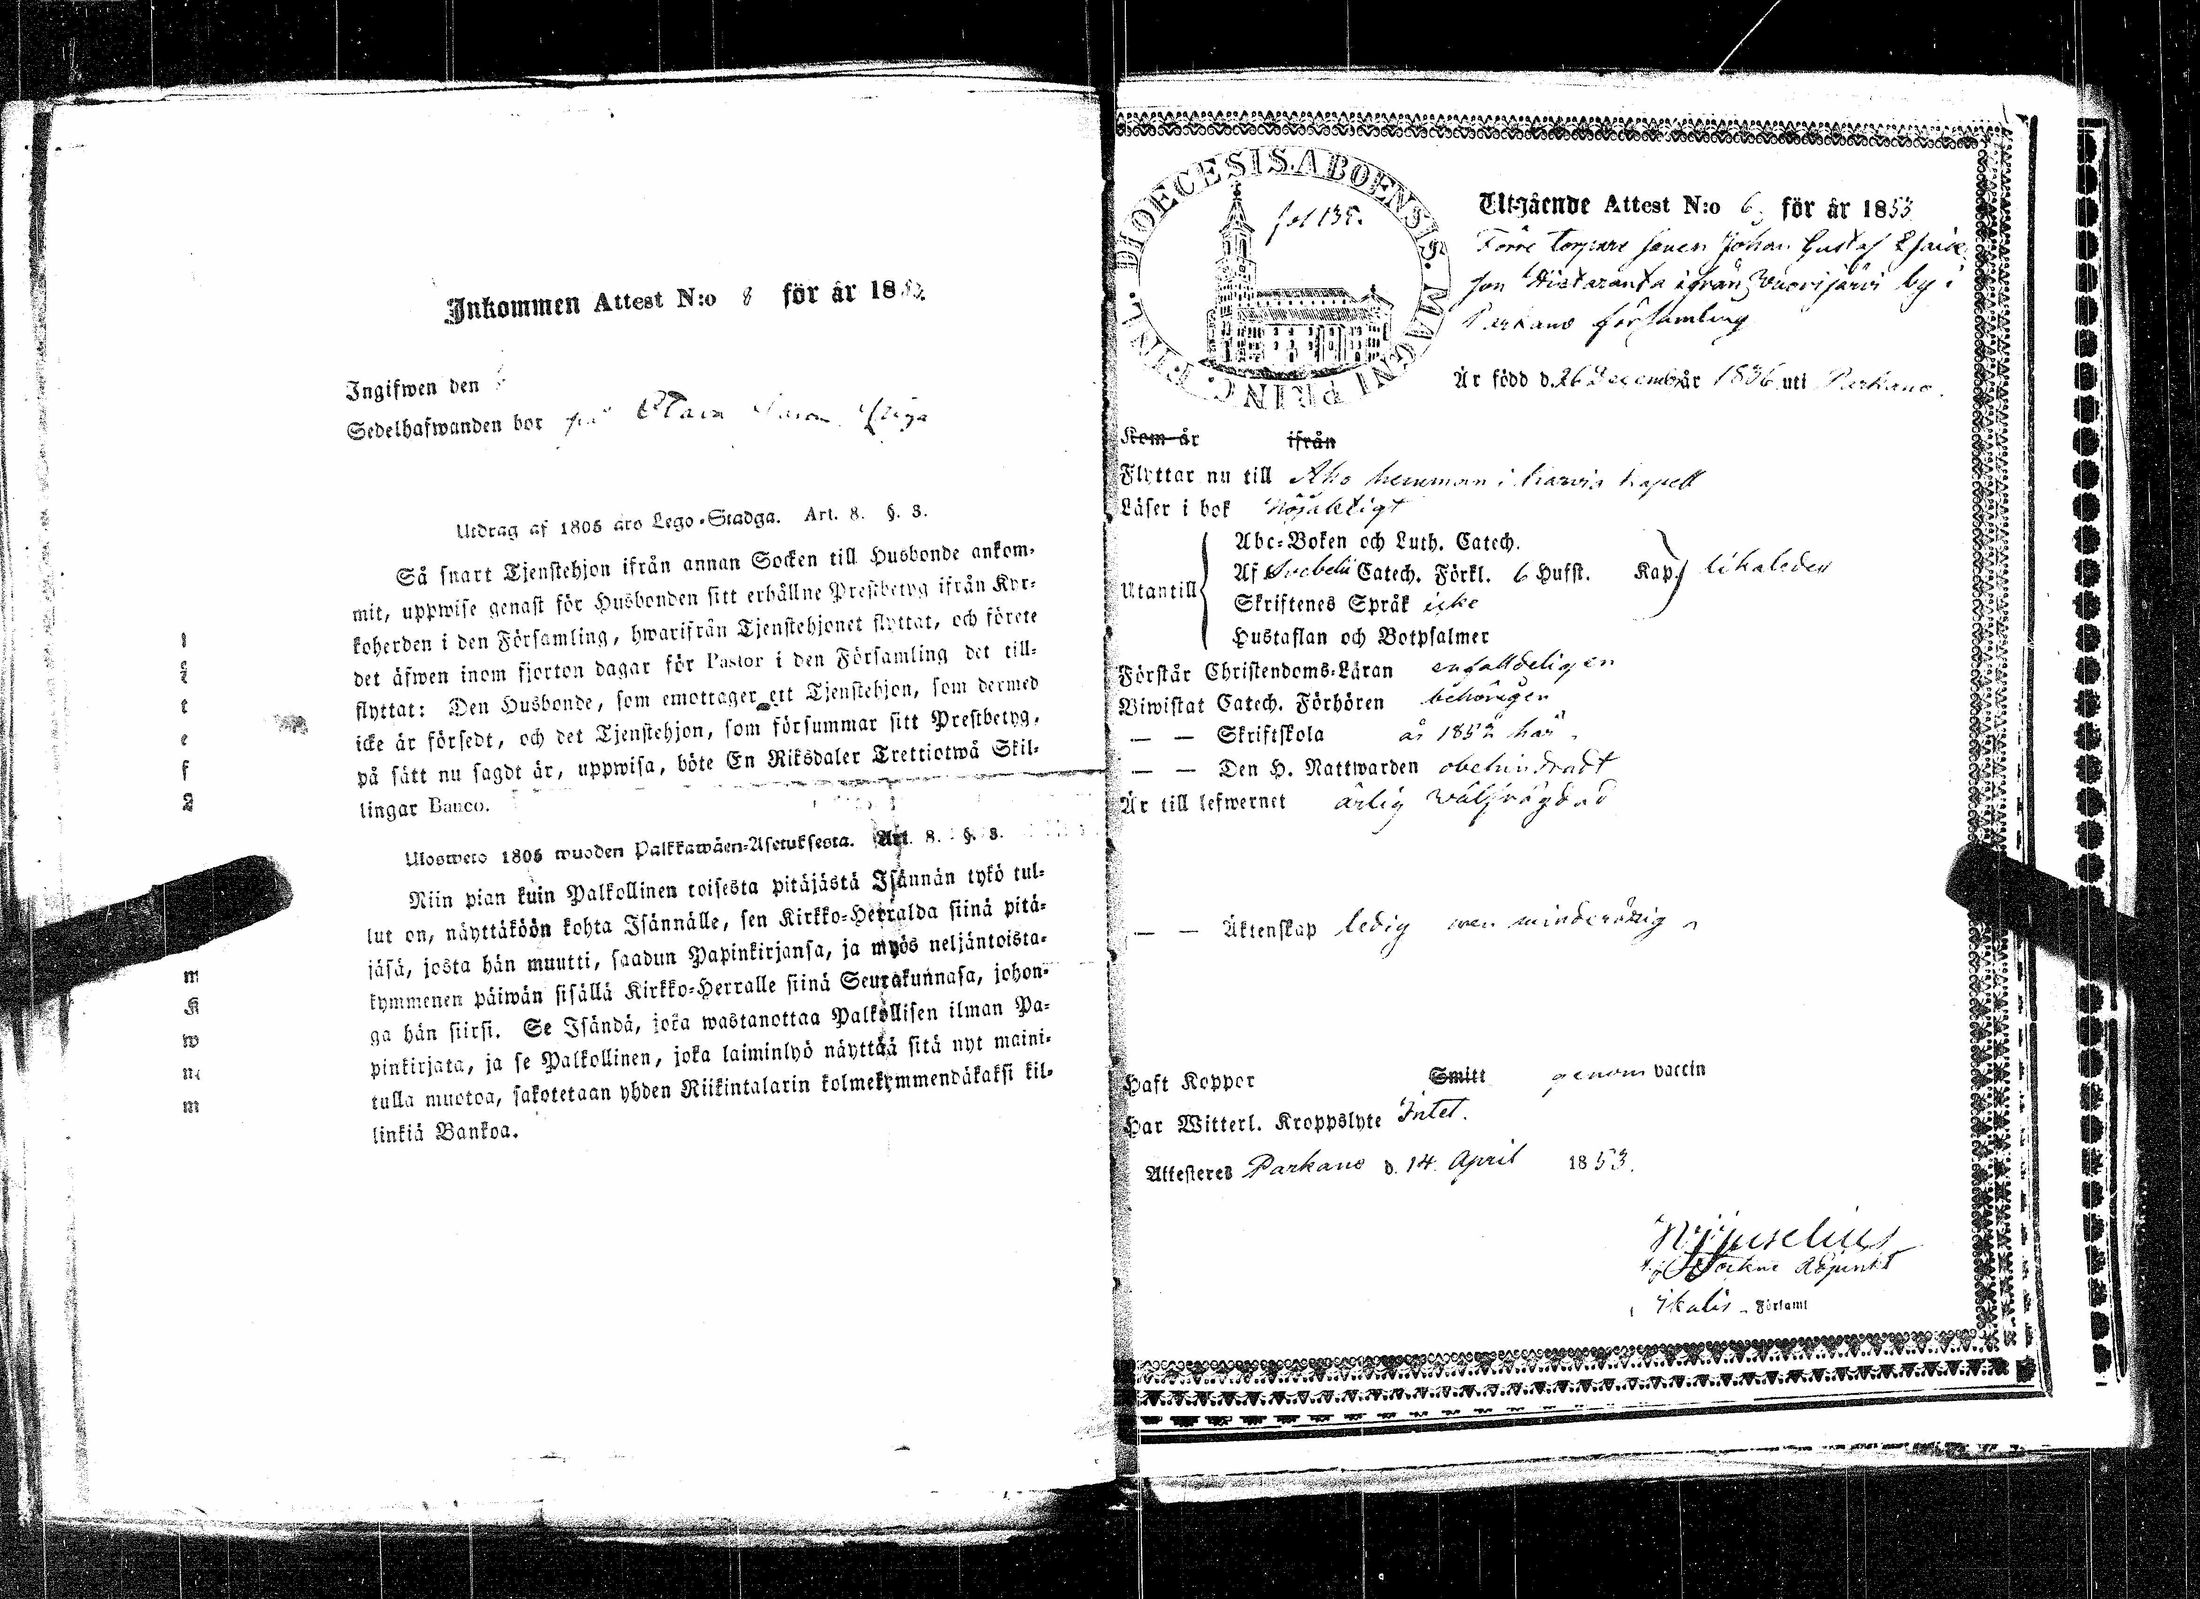 Inkommen Attest N:o 8 för år 18
Ingifwen den
Sedelhafwanden bor
Utdrag af 1805 års Lego-Stadga. Art. 8. §. 3.
Så snart Tjenstehjon ifrån annan Socken till Husbonde ankom-
mit, uppwise genast för Husbonden sitt erhållne Prestbetyg ifrån Kyr-
koherden i den Församling, hwarifrån Tjenstehjonet flyttat, och förete
det äfwen inom fjorton dagar för Pastor i den Församling det till-
flyttat: Den Husbonde, som emottager ett Tjenstehjon, som dermed
icke är försedt, och det Tjenstehjon, som försummar sitt Prestbetyg,
på sätt nu sagdt är, uppwisa, böte En Riksdaler Trettiotwå Skil-
lingar Banco.
Ulosweto 1805 wuoden Palkkawäen-Asetuksesta. Art. 8. §. 3.
Niin pian kuin Palkollinen toisesta pitäjästä Isännän tykö tul-
lut on, näyttäköön kohta Isännälle, sen Kirkko-Herralda siinä pitä-
jäsä, josta hän muutti, saadun Papinkirjansa, ja myös neljäntoista-
kymmenen päiwän sisällä Kirkko-Herralle siinä Seurakunnasa, johon-
ga hän siirsi. Se Isändä, joka wastanottaa Palkollisen ilman Pa-
pinkirjata, ja se Palkollinen, joka laiminlyö näyttää sitä nyt maini-
tulla muotoa, sakotetaan yhden Riikintalarin kolmekymmendäkaksi kil-
linkiä Bankoa.
DIOECESIS. ABOENSIS. MAGNI PRINC. FINL.
fol 135.
Utgående Attest N:o 6, för år 1853
Förre torpare sonen Johan Gustaf
son ifrån Vuorijärvi by i
Parkano församling
Är född d. 26 December år 1836 uti Parkano.
Kom år ifrån
Flyttar nu till Aho hemman i Karvia kapell
Läser i bok nöjaktigt
Utantill
Abc-Boken och Luth. Catech.
Af Svebelii Catech. Förkl. 6 Hufst. Kap. likaledes
Skriftenes Språk icke
Hustaflan och Botpsalmer
Förstår Christendoms-Läran enfalldeligen
Biwistat Catech. Förhören behörigen
— — Skriftskola år 1852 här
— — Den H. Nattwarden obehindradt
Är till lefwernet ärlig wälfrägdad
— — Äktenskap ledig men minderårig
Haft Koppor Smitt genom vaccin
Har Witterl. Kroppslyte Intet.
Attesteres Parkano d. 14 April 1853.
Adjunkt
i Ikalis Församl